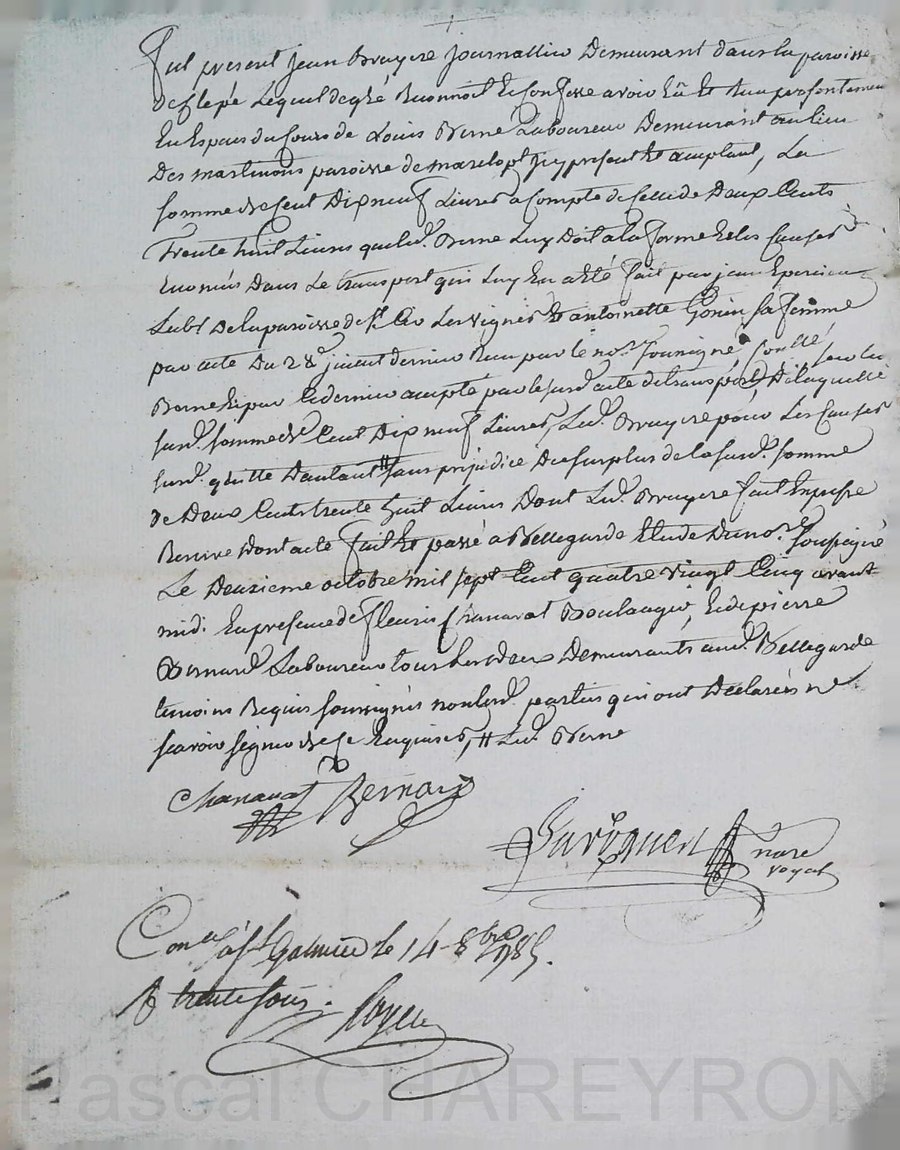 fut present jean Bruyere journallier Demeurant dans la paroisse
de Clepé Lequel de gré Reconnoit Et Confesse avoir Eü Et Reçu presentement
En Espece du Cours de Louis Berne Laboureur Demeurant au lieu
Des martinons paroisse de marclopt jcy present Et acceptant, La
somme de Cent Dix neuf Livres a Compte de Celle de Deux Cents
trente huit Livres que Lud. Berne Luy Doit a la forme Et les Causes
Enoncés Dans Le transport qui Luy En a Eté fait par jean
Labr. De la paroisse de St Cir Les vignes Et antoinette Gonin sa femme
par acte Du 28e juient dernier Reçu par le nore. soussigné, Led.
Berne Et par Ce dernier accepté par le susd. acte de transport, De laquelle
susd. somme de Cent Dix neuf Livres, Led. Bruyere pour Les Causes
susd. quitte D'autant # sans prejudice Du surplus de la susd. somme
de Deux Cents trente huit Livres Dont Led. Bruyere fait Expresse
Reserve Dont acte fait Et passé a Bellegarde Etude Du nore. soussigné
Le Deuxieme octobre mil sept Cent quatre vingt Cinq avant
midi En presence de fleuris Chanavat Boulanger, Et de pierre
Bernard Laboureur tous Les deux Demeurants aud. Bellegarde
temoins Requis soussignés non Lesd. parties qui ont Declarées ne
scavoir signer de Ce Enquises, # Led. Berne
Chanavat Bernard
nore
royal
Con.lé à St Galmier le 14 8bre 1785.
R trente sous.